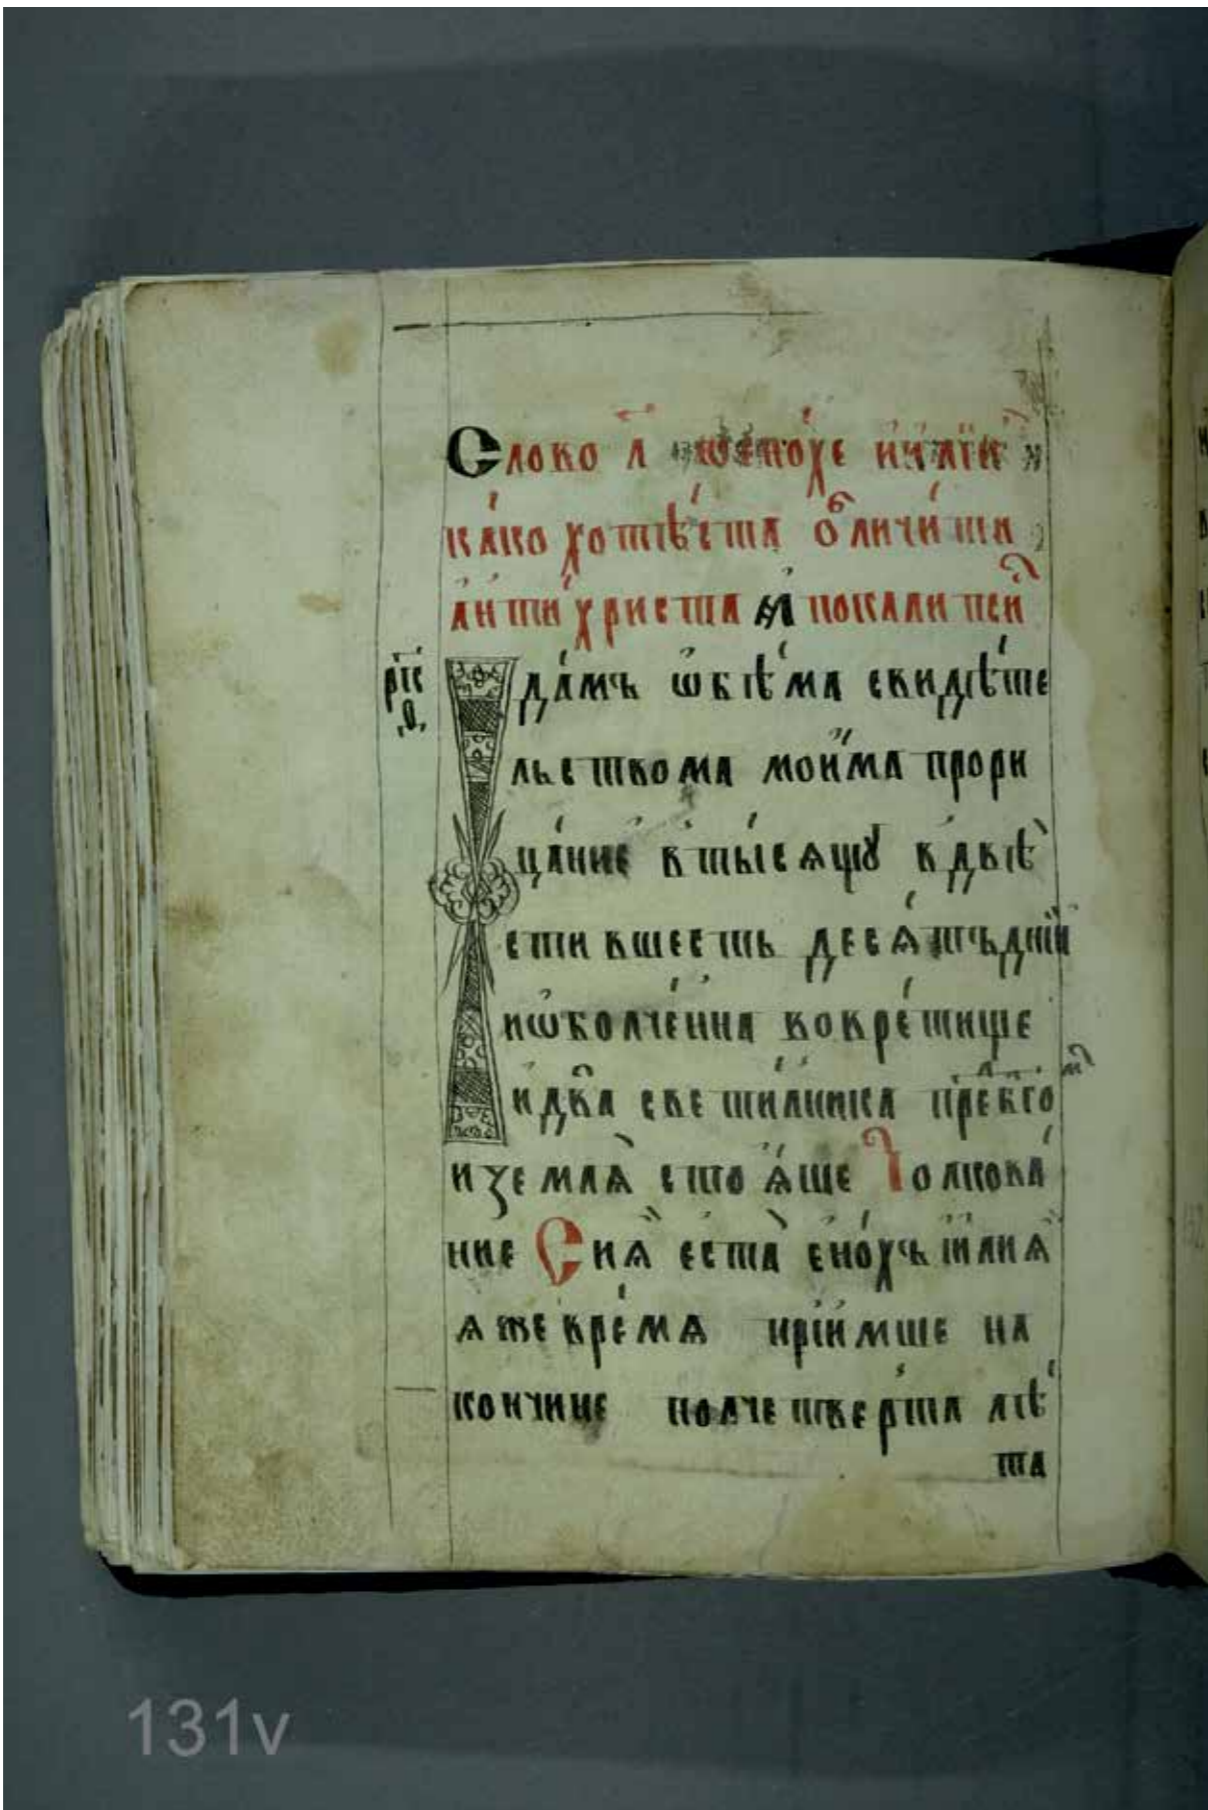 Слово л҃ ѡ енохе и илїи
ка́ко хотѣ́ста ѻбличи́ти
а҆нтихриста а҆покалипсиⷭ҇
И дамъ ѡ҆бѣ́ма свидѣ́те
льствома мои́ма прори
ца́ние в ты́сѧщꙋ в двѣ̀
сти в шесть десѧ́тъ днїй
и ѡболче́нна во вре́тище
и два светилника пред бг҃омъ
и земля стоѧ́ще Толкова́
ние Сиѧ̀ еста̀ е҆но́хъ и҆ илиѧ
ѧже вре́мѧ приїмше на
кончине полчетве́рта лѣ́
та
рк҃г
о
131v